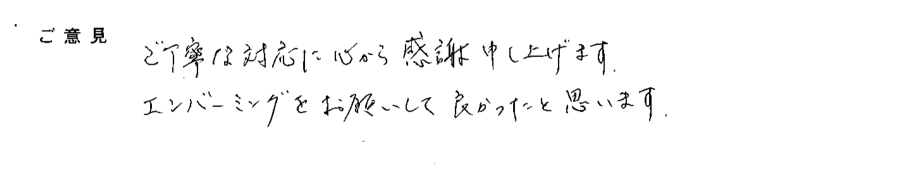 ご意見
ご丁寧な対応に心から感謝申し上げます.
エンバーミングをお願いして良かったと思います.